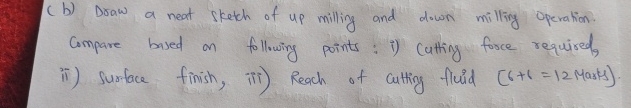 (b) Draw a neat sketch of up milling and down milling operation.
Compare based on following points : i) Cutting force required,
ii) Surface finish, iii) Reach of cutting fluid (6+6 = 12 Marks)